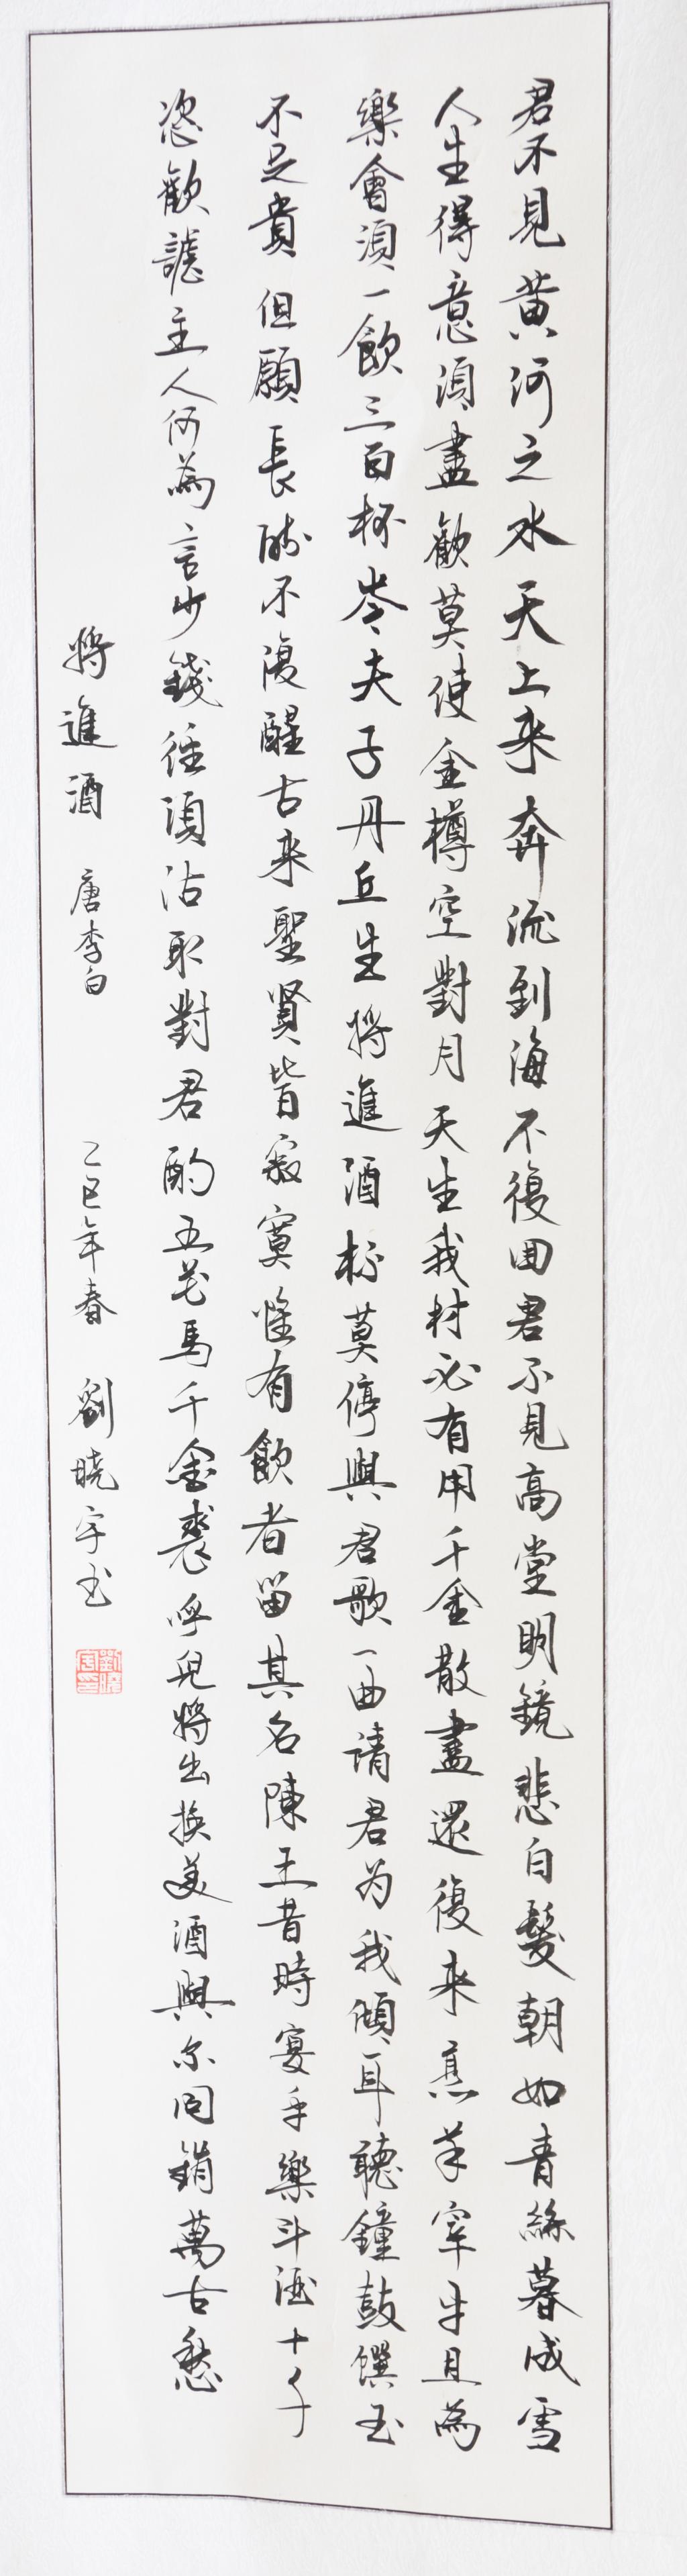 君不見黃河之水天上来奔流到海不復回君不見高堂明鏡悲白髮朝如青絲暮成雪
人生得意須盡歡莫使金樽空對月天生我材必有用千金散盡還復来烹羊宰牛且為
樂會須一飲三百杯岑夫子丹丘生將進酒杯莫停與君歌一曲請君为我傾耳聽鐘鼓饌玉
不足貴但願長醉不復醒古来聖賢皆寂寞惟有飲者留其名陳王昔時宴平樂斗酒十千
恣歡謔主人何為言少錢徑須沽取對君酌五花馬千金裘呼兒將出換美酒與尔同銷萬古愁
將進酒 唐李白 乙巳年春 劉曉宇书